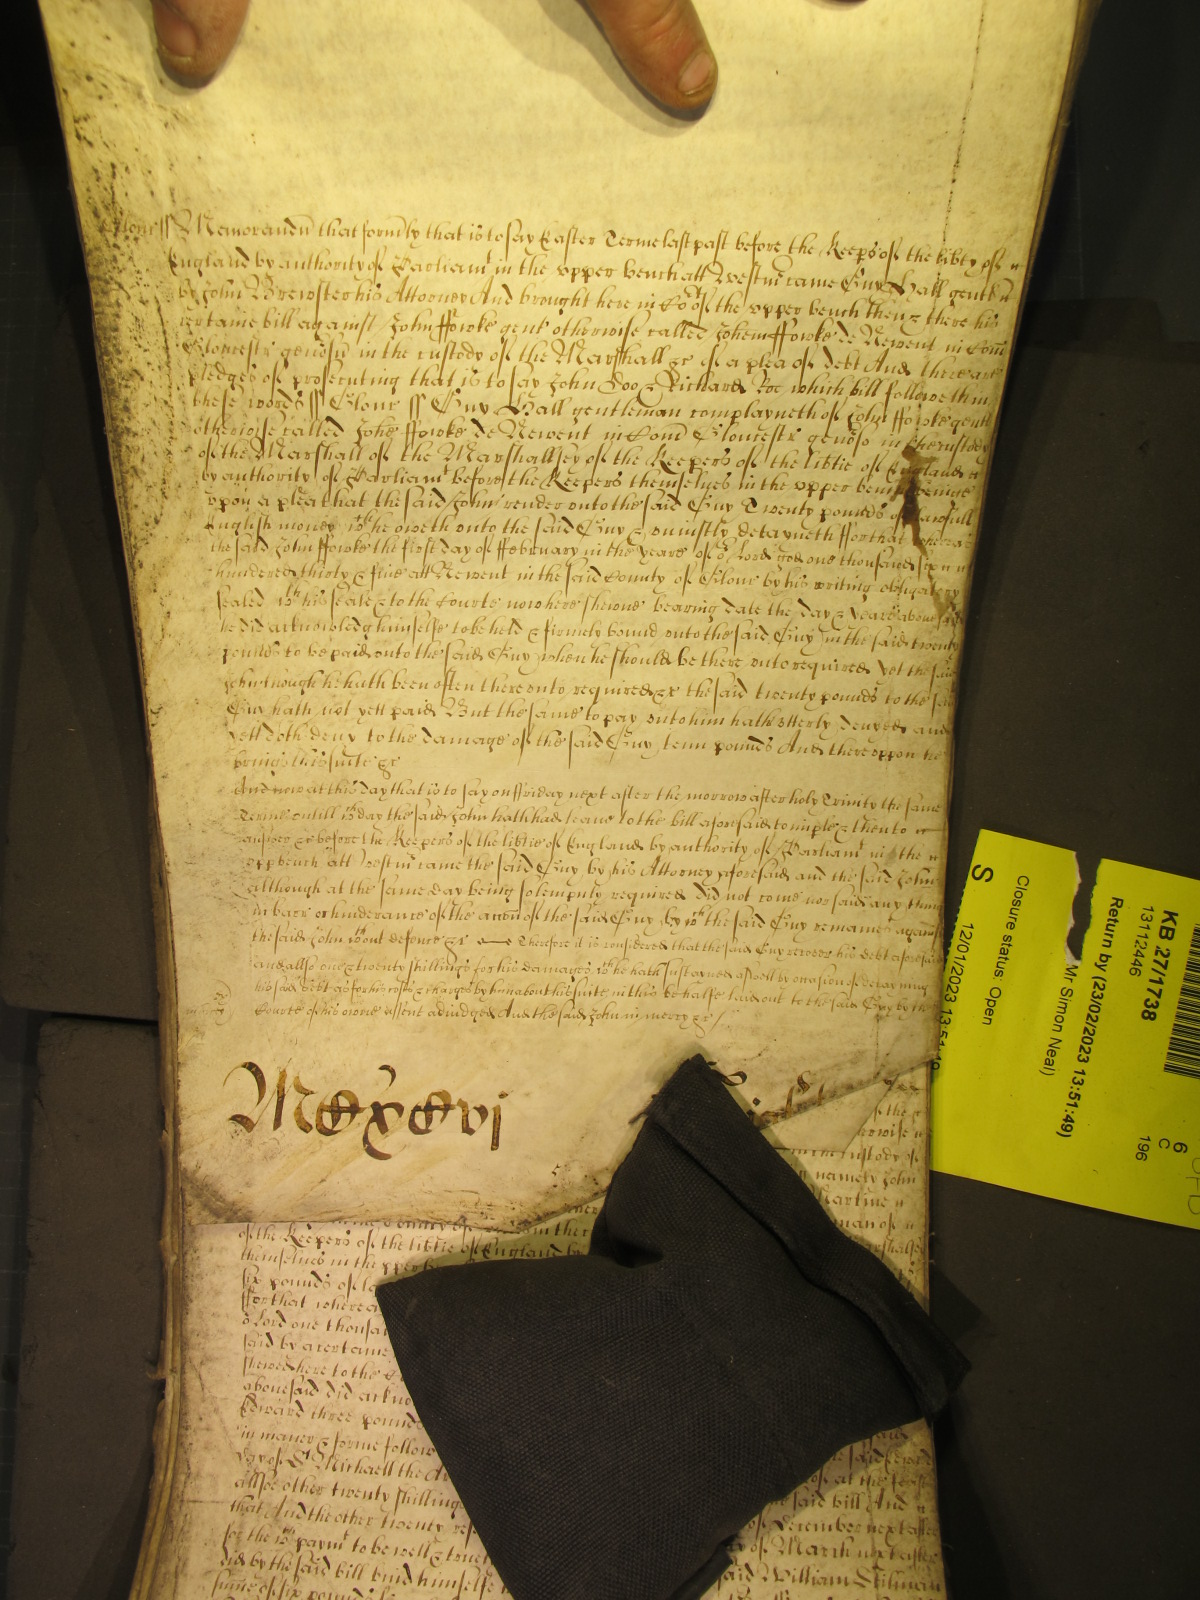 Glouc ss Memorandū that formly that is to say Easter Terme last past before the Keeps of the libty of
England by authority of Parliamt in the upper bench att Westmr came Guy Hall gent
by John Brewster his Attorney And brought here in Cot of the upper bench then & there his
certaine bill against John ffowke gent otherwise called Johem ffowke de Newent in Com
Gloucestr genosū in the custody of the Marshall &c of a plea of debt And there are
pledges of prosecuting that is to say John Doo & Richard Roe which bill followeth in
these words ss Glouc ss Guy Hall gentleman complayneth of John ffowke gent
otherwise called Johē ffowke de Newent in Com Gloucestr genoso in the custody
of the Marshall of the Marshallsey of the Keepers of the libtie of England
by authority of Parliamt before the Keepers themselves in the upper bench
upon a plea that the said John render unto the said Guy Twenty pounds of lawfull
English money wch he oweth unto the said Guy & uniustly detayneth ffor that whereas
the said John ffowke the first day of ffebruary in the yeare of or Lord god one thousand six
hundered thirty & five att Newent in the said County of Glouc by his writing obligatory
sealed wth his seale & to the Courte now here shewne bearing date the day & yeare above said
he did acknowledg himselfe to be held & firmely bound unto the said Guy in the said twenty
pounds to be paid unto the said Guy when he should be there unto required Yet the said
John though he hath been often there unto required &c the said twenty pounds to the said
Guy hath not yett paid But the same to pay unto him hath utterly denyed and
yett doth deny to the damage of the said Guy tenn pounds And thereuppon he
brings his suite &c
And now at this day that is to say on ffriday next after the morrow after holy Trinity the same
Terme untill wch day the said John hath had leave to the bill aforesaid to imple & then to
answer &c before the Keepers of the libtie of England by authority of Parliamt in the
upp bench att Westmr came the said Guy by his Attorney aforesaid and the said John
although at the same day being solempnly required did not come nor said any thing
in barr or hinderance of the accōn of the said Guy by wch the said Guy remaines against
the said John wthout defence &c Therefore it is considered that the said Guy recover his debt aforesaid
and allso one & twenty shillings for his damages wch he hath sustayned aswell by occasion of detayning
his said debt as for his costs & charges by him about his suite in this behalfe laid out to the said Guy by the
Courte of his owne assent adiudged And the said John in mercy &c
Mcxcvi
of the
custody of
namely John
of the Keepers of the libtie of England by
themselves in the upper
six pounds of
ffor that wherea
or Lord one thousan
said by a certaine
shewed here to the
abovesaid did ackno
Edward three pounds
in maner & forme follow
day of St Michaell the
allsoe other twenty shillings
that And the other twenty
for the wch paymt to be well & true
did by the said bill bind himselfe
sume of six pounds
at the feast
said bill And
of december next after
day of March next after
said William
KB 27/1738
13112446
Return by (23/02/2023 13:51:49)
Mr Simon Neal)
Closure status: Open
12/01/2023 13:51:49
S
6
C
196